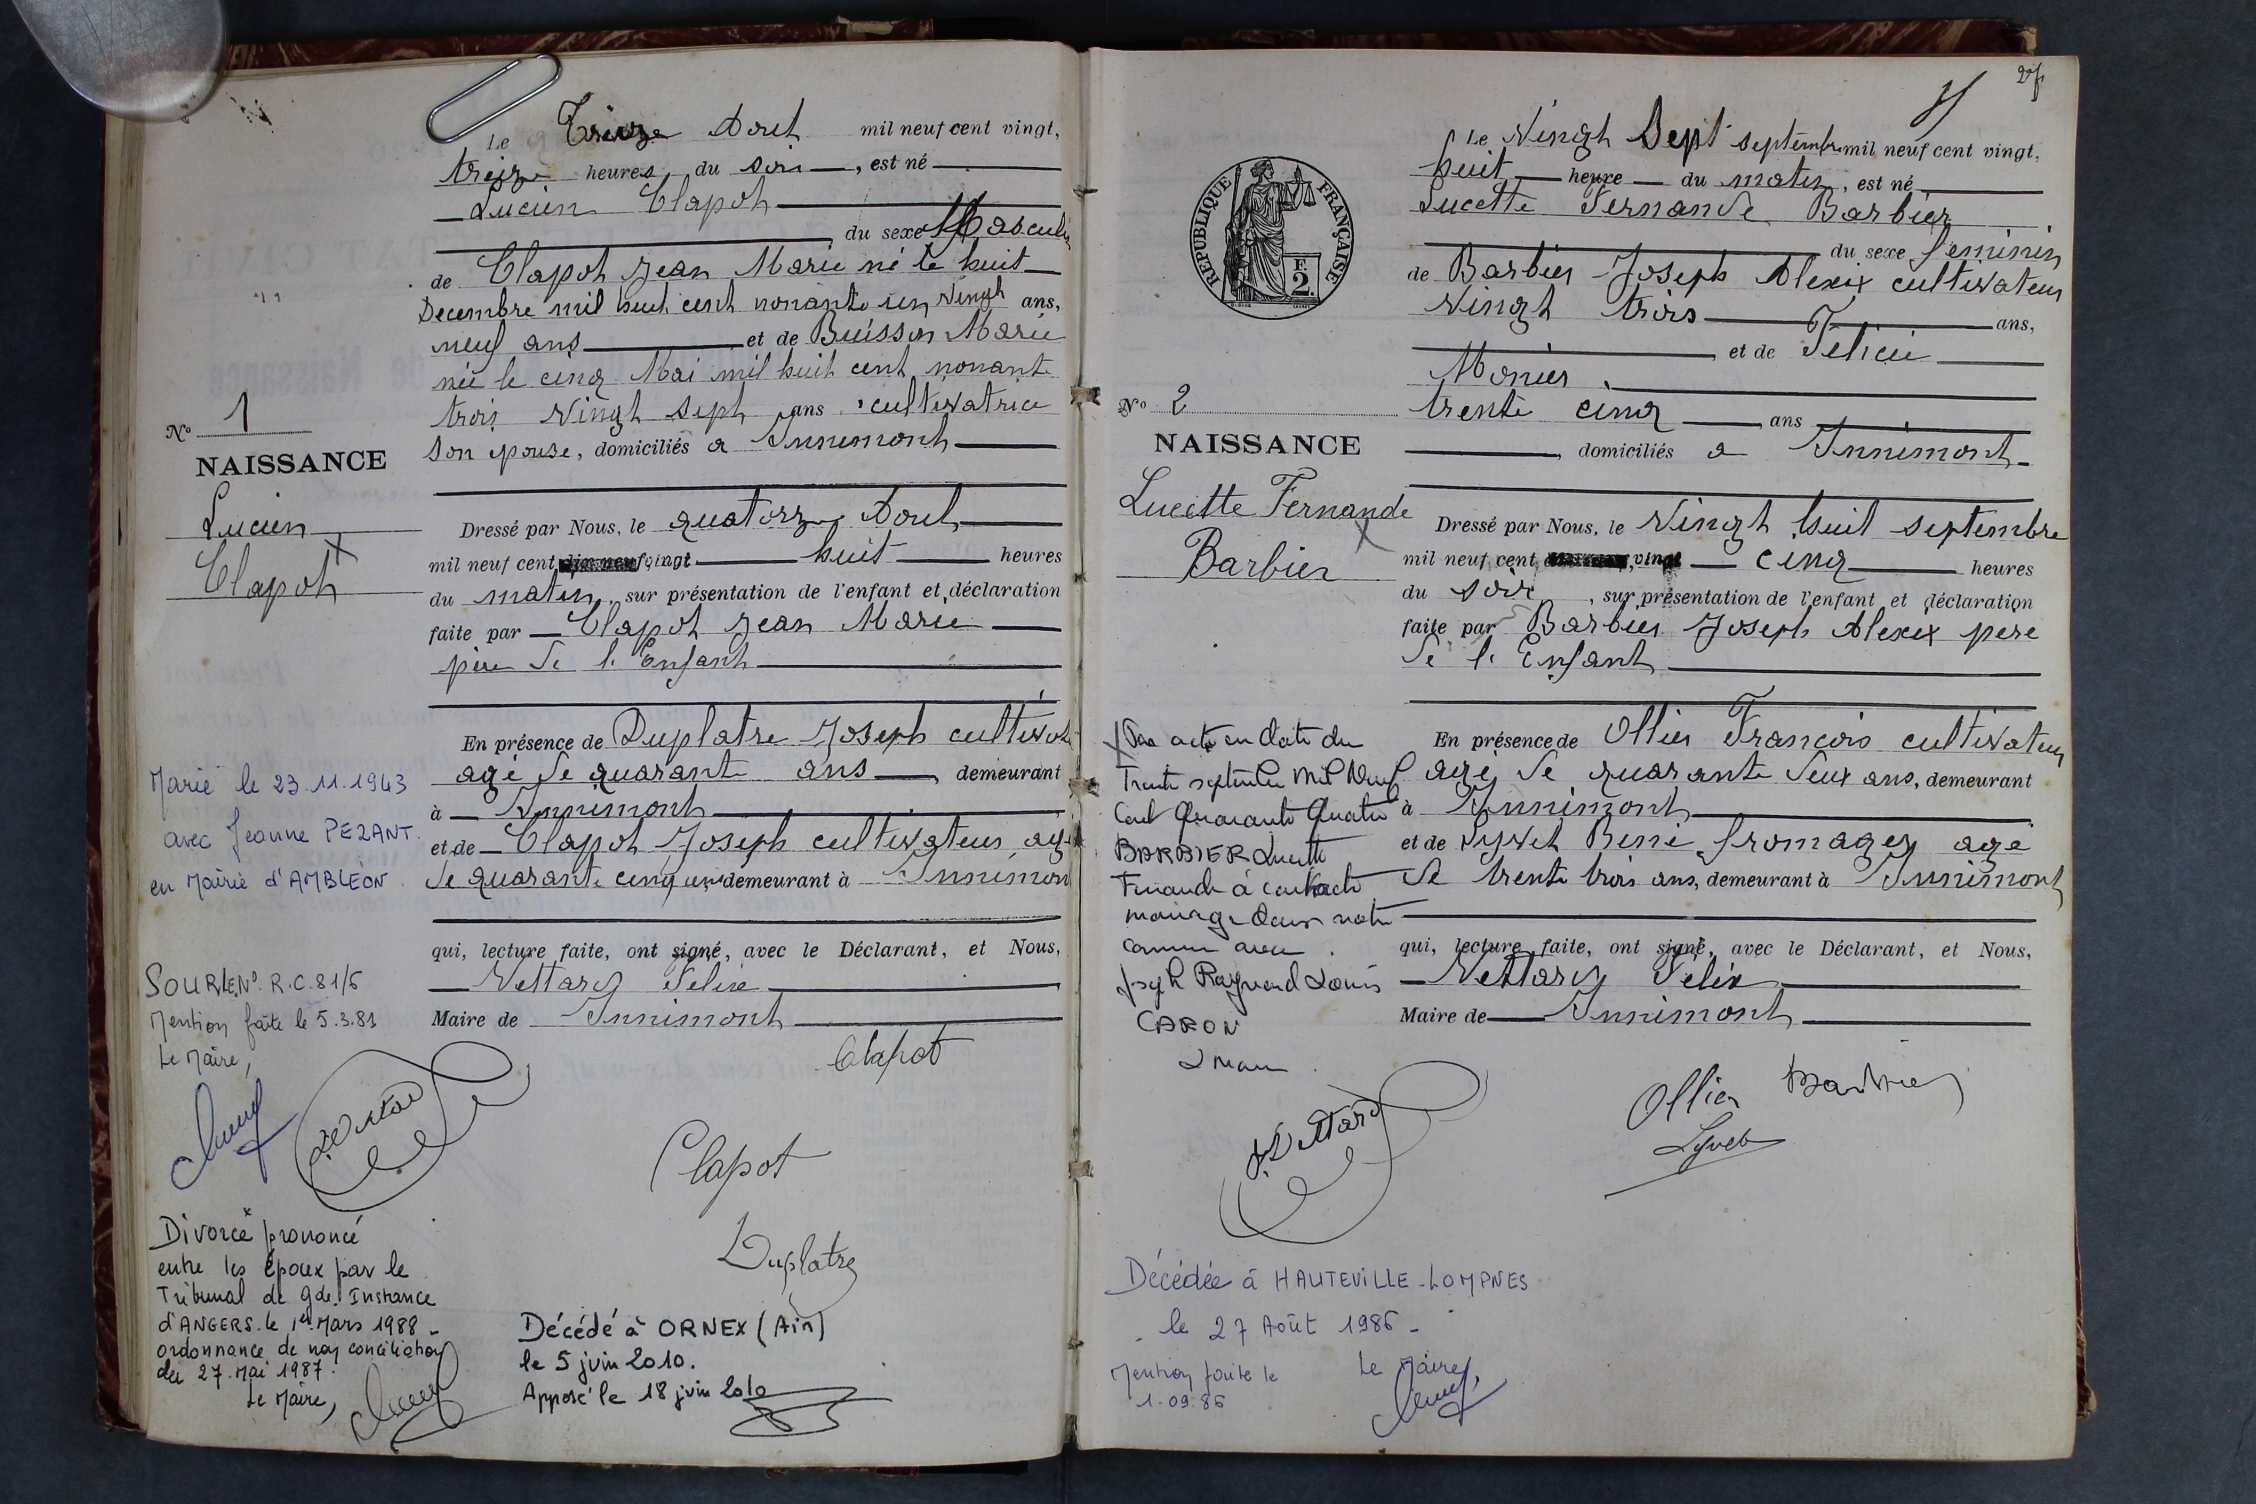 Le Treize Aout mil neuf cent vingt,
treize heures du soir, est né
Lucien Clapot
du sexe Masculin
de Clapot Jean Marie né le huit
Decembre mil huit cent nonante un vingt ans,
neuf ans et de Buisson Marie
née le cinq Mai mil huit cent nonante
trois vingt sept ans cultivatrice
son epouse, domiciliés a Innimont
Nº 1
NAISSANCE
Lucien
Clapot
Dressé par Nous, le quatorze Aout
mil neuf cent vingt huit heures
du matin, sur présentation de l'enfant et déclaration
faite par Clapot Jean Marie
père de l'Enfant
En présence de Duplatre Joseph cultivat
agé de quarante ans demeurant
à Innimont
et de Clapot Joseph cultivateur agé
de quarante cinq ans demeurant à Innimont
qui, lecture faite, ont signé, avec le Déclarant, et Nous,
Vettard Felix
Maire de Innimont
Marié le 23.11.1943
avec Jeanne PEZANT
en Mairie d'AMBLEON
Nº R.C. 81/6
Mention faite le 5.3.81
Le Maire,
Clapot
Clapot
Duplatre
Divorce prononcé
entre les époux par le
Tribunal de gde. Instance
d'ANGERS le 1er Mars 1988 -
ordonnance de non conciliation
du 27 Mai 1987.
Le Maire,
Décédé à ORNEX (Ain)
le 5 juin 2010.
Apposé le 18 juin 2010
Le Vingt Sept septembre mil neuf cent vingt,
huit heure du matin, est né
Lucette Fernande Barbier
du sexe feminin
de Barbier Joseph Alexix cultivateur
Vingt trois ans,
et de Felicie
Monier
trente cinq ans
domiciliés a Innimont
REPUBLIQUE FRANÇAISE
F.
2.
Nº 2
NAISSANCE
Lucette Fernande
Barbier
Dressé par Nous, le Vingt huit septembre
mil neuf cent vingt cinq heures
du soir, sur présentation de l'enfant et déclaration
faite par Barbier Joseph Alexix pere
de l'Enfant
En présence de Ollier Francois cultivateur
agé de quarante deux ans, demeurant
à Innimont
et de Lyvet René fromager agé
de trente trois ans, demeurant à Innimont
qui, lecture faite, ont signé, avec le Déclarant, et Nous,
Vettard Felix
Maire de Innimont
Par acte en date du
Trente septembre Mil Neuf
Cent Quarante Quatre
BARBIER Lucette
Fernande à contracté
mariage dans notre
commune avec
Joseph Raymond Louis
CARON
F. Vettard
Ollier
Barbier
Lyvet
Décédée à HAUTEVILLE-LOMPNES
le 27 Août 1986 -
Mention faite le
1.09.86
Le Maire,